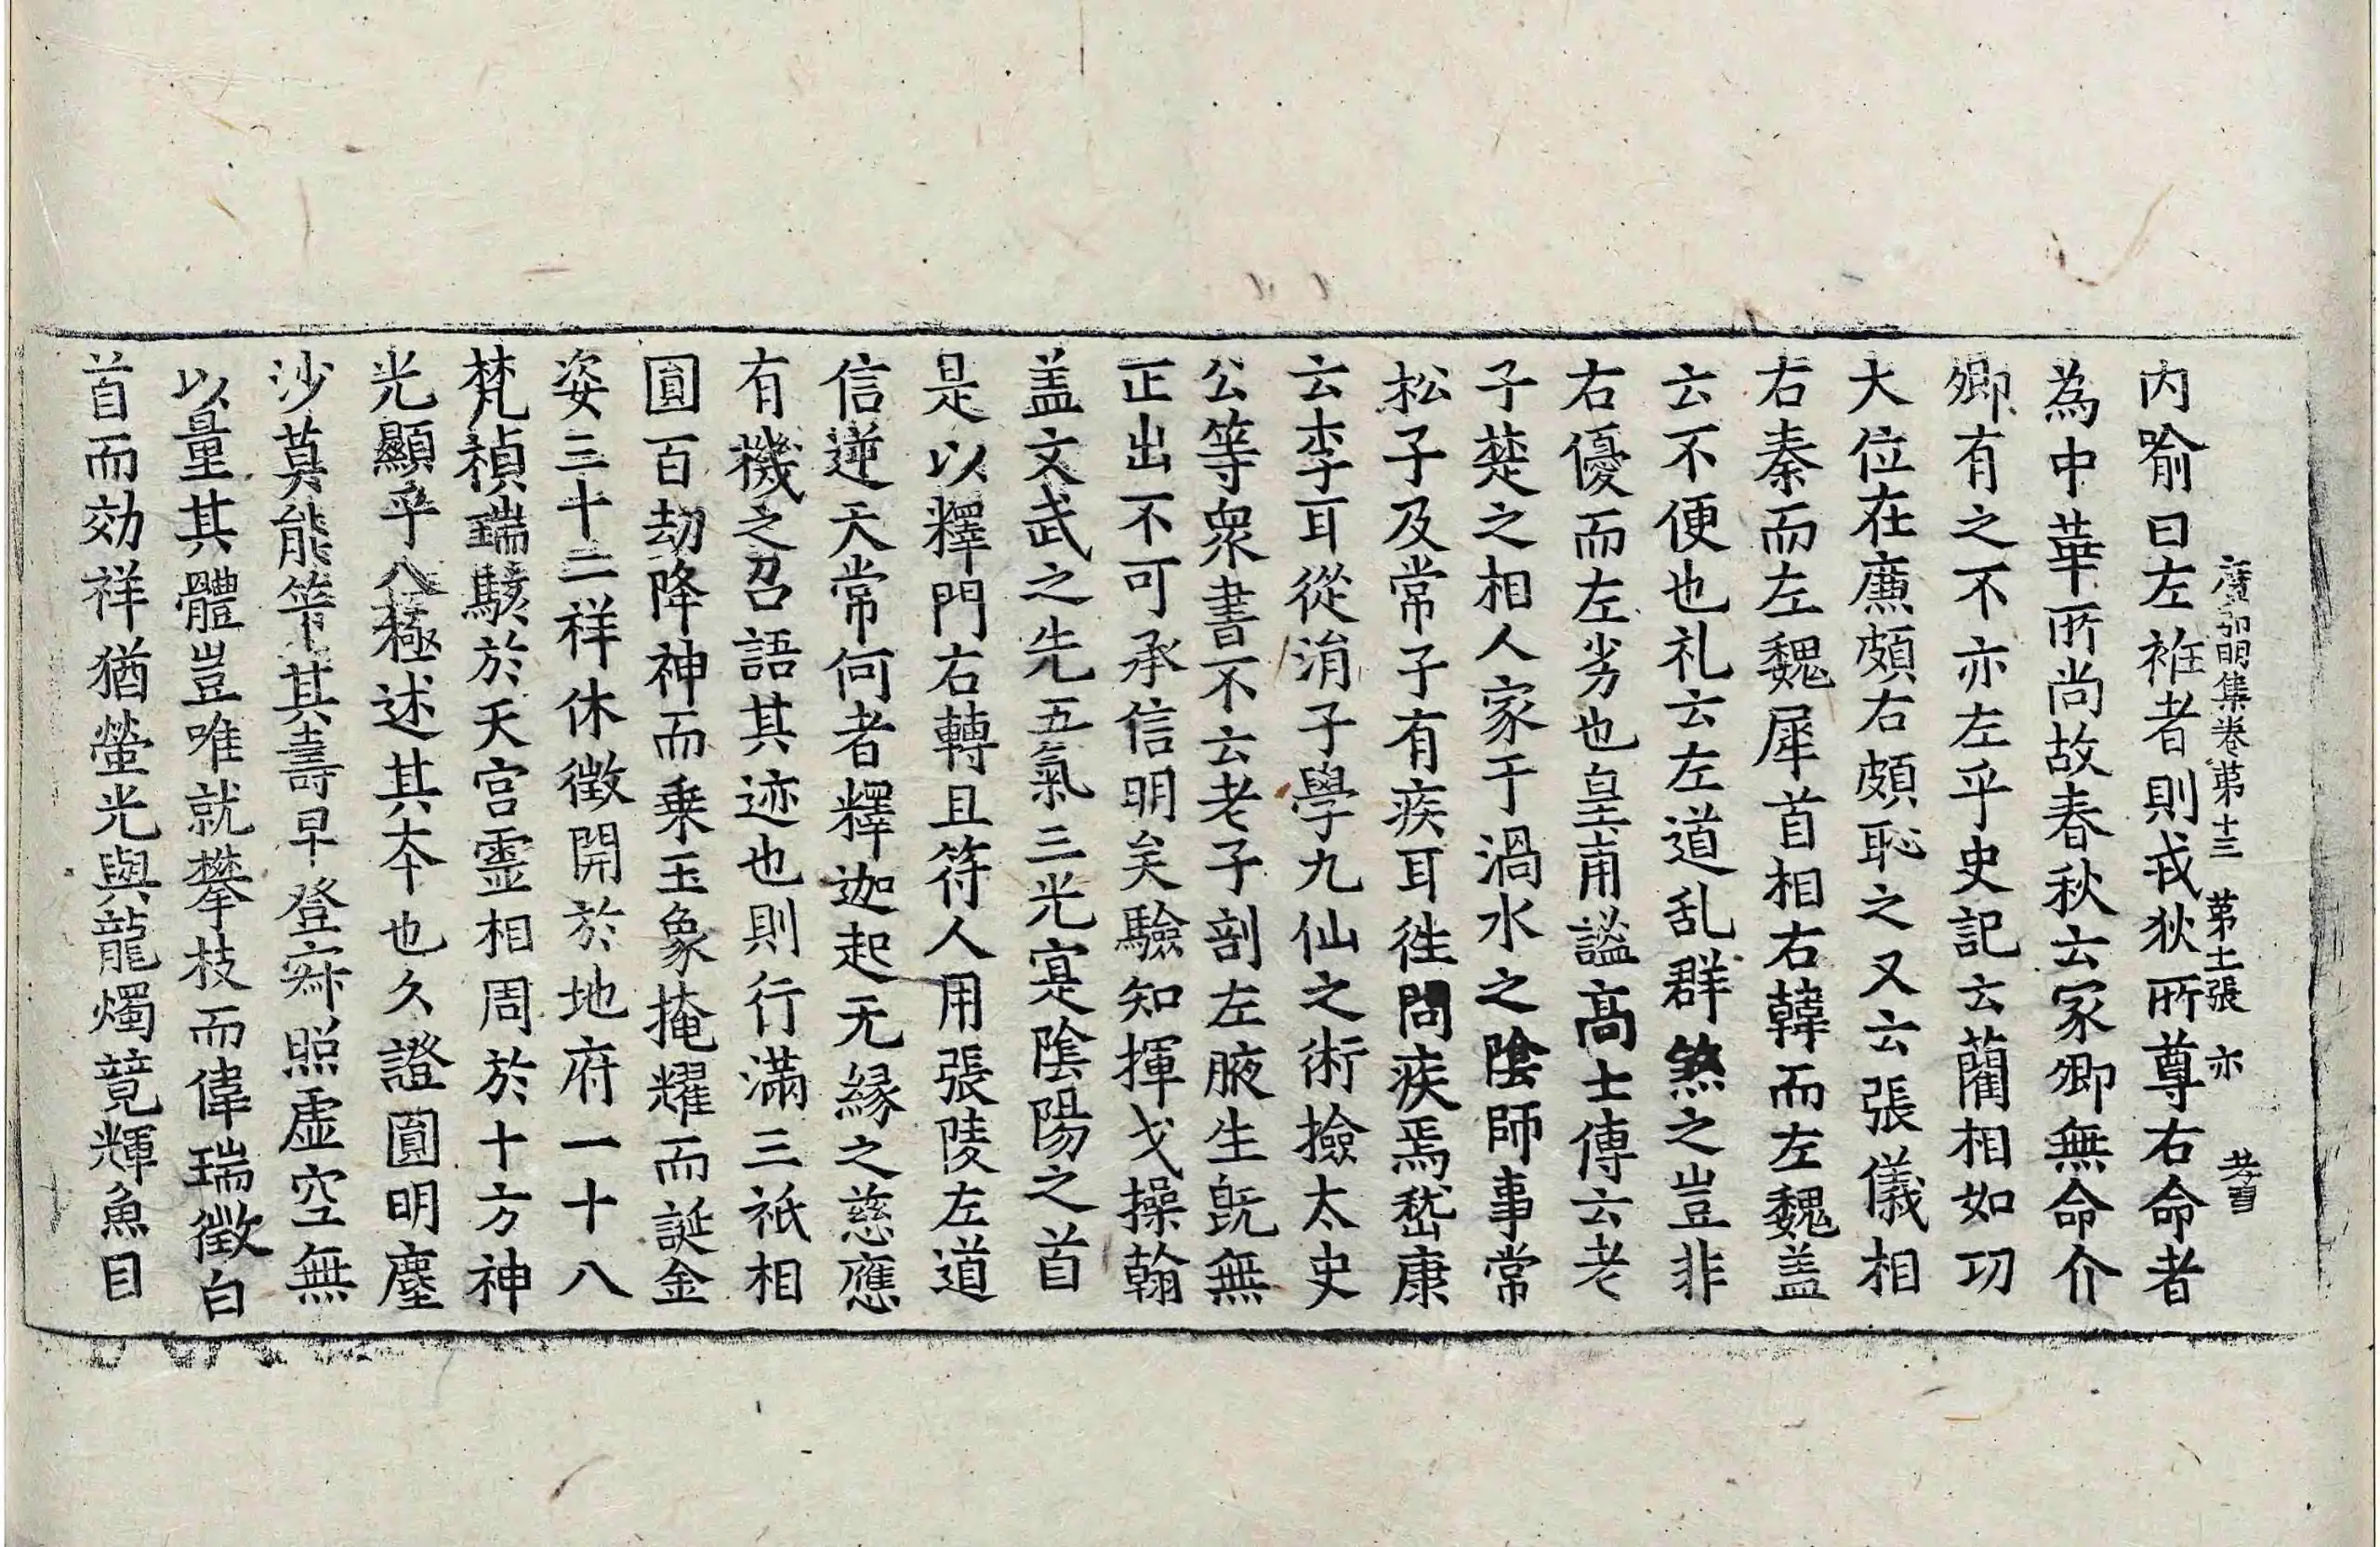 廣弘明集卷第十三 第十二張 亦
内喻曰左袵者則戎狄所尊右命者
為中華所尚故春秋云冢卿無命介
卿有之不亦左乎史記云藺相如功
大位在廉頗右頗恥之又云張儀相
右秦而左魏犀首相右韓而左魏盖
云不便也礼云左道乱群煞之豈非
右優而左劣也皇甫謐高士傳云老
子楚之相人家于渦水之陰師事常
松子及常子有疾耳徃問疾焉嵇康
云李耳從涓子學九仙之術撿太史
公等衆書不云老子剖左腋生旣無
正出不可承信明矣驗知揮戈操翰
盖文武之先五氣三光寔陰陽之首
是以釋門右轉且符人用張陵左道
信逆天常何者釋迦起无緣之慈應
有機之召語其迹也則行滿三祇相
圓百劫降神而乗玉象掩耀而誕金
姿三十二祥休徵開於地府一十八
梵禎瑞駭於天宮靈相周於十方神
光顯乎八極述其夲也久證圓明塵
沙莫能筭其壽早登寂照虛空無
以量其體豈唯就攀枝而偉瑞徵白
首而効祥猶螢光與龍燭竟輝魚目